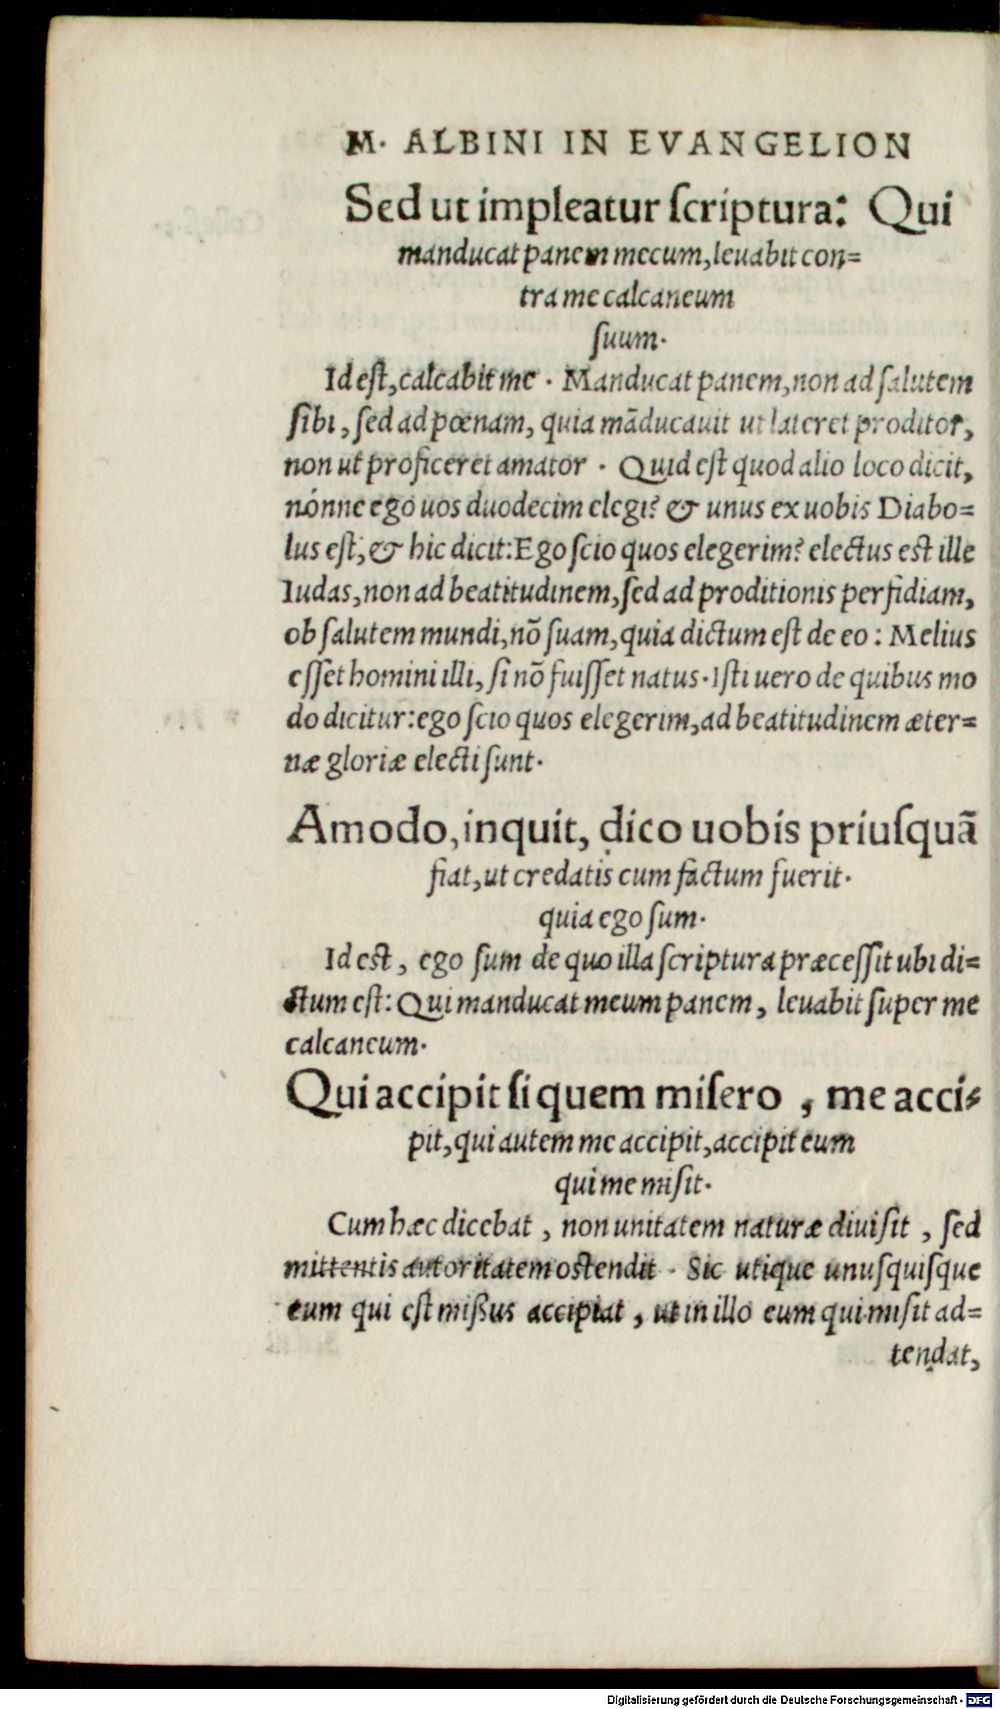 M. ALBINI IN EVANGELION
Sed ut impleatur ſcriptura: Qui
manducat panem mecum, leuabit con=
tra me calcaneum
ſuum.
Id eſt, calcabit me. Manducat panem, non ad ſalutem
ſibi, ſed ad pœnam, quia mãducauit ut lateret proditor,
non ut proficeret amator. Quid eſt quod alio loco dicit,
nónne ego uos duodecim elegi? & unus ex uobis Diabo=
lus eſt; & hic dicit: Ego ſcio quos elegerim? electus eſt ille
Iudas, non ad beatitudinem, ſed ad proditionis perfidiam,
ob ſalutem mundi, nõ ſuam, quia dictum eſt de eo: Melius
eſſet homini illi, ſi nõ fuiſſet natus. Iſti uero de quibus mo
do dicitur: ego ſcio quos elegerim, ad beatitudinem æter=
næ gloriæ electi ſunt.
Amodo, inquit, dico uobis priuſquã
fiat, ut credatis cum factum fuerit.
quia ego ſum.
Id eſt, ego ſum de quo illa ſcriptura præceſſit ubi di=
ctum eſt: Qui manducat meum panem, leuabit ſuper me
calcaneum.
Qui accipit ſi quem miſero, me acci=
pit, qui autem me accipit, accipit eum
qui me miſit.
Cum hæc dicebat, non unitatem naturæ diuiſit, ſed
mittentis autoritatem oſtendit. Sic utique unuſquiſque
eum qui eſt mißus accipiat, ut in illo eum qui miſit ad=
tendat,
Digitalisierung gefördert durch die Deutsche Forschungsgemeinschaft - DFG